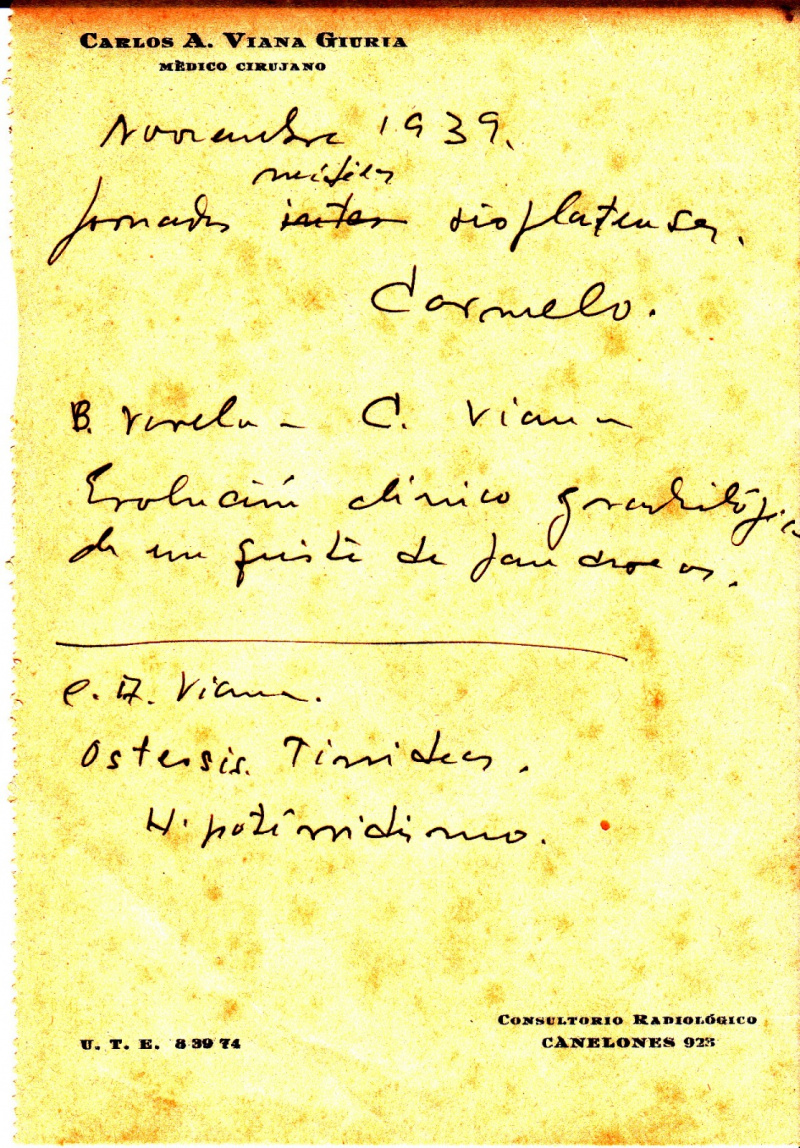 CARLOS A. VIANA GIURIA
MÈDICO CIRUJANO
Noviembre 1939.
médicas
Jornadas inter rioplatenses.
Carmelo.
B. Varela - C. Viana
Evolución clínico
de un quiste de
C. A. Viana.
Osteosis. Tiroideas.
Hipotiroidismo.
CONSULTORIO RADIOLÓGICO
U. T. E. 8 39 74
CANELONES 923